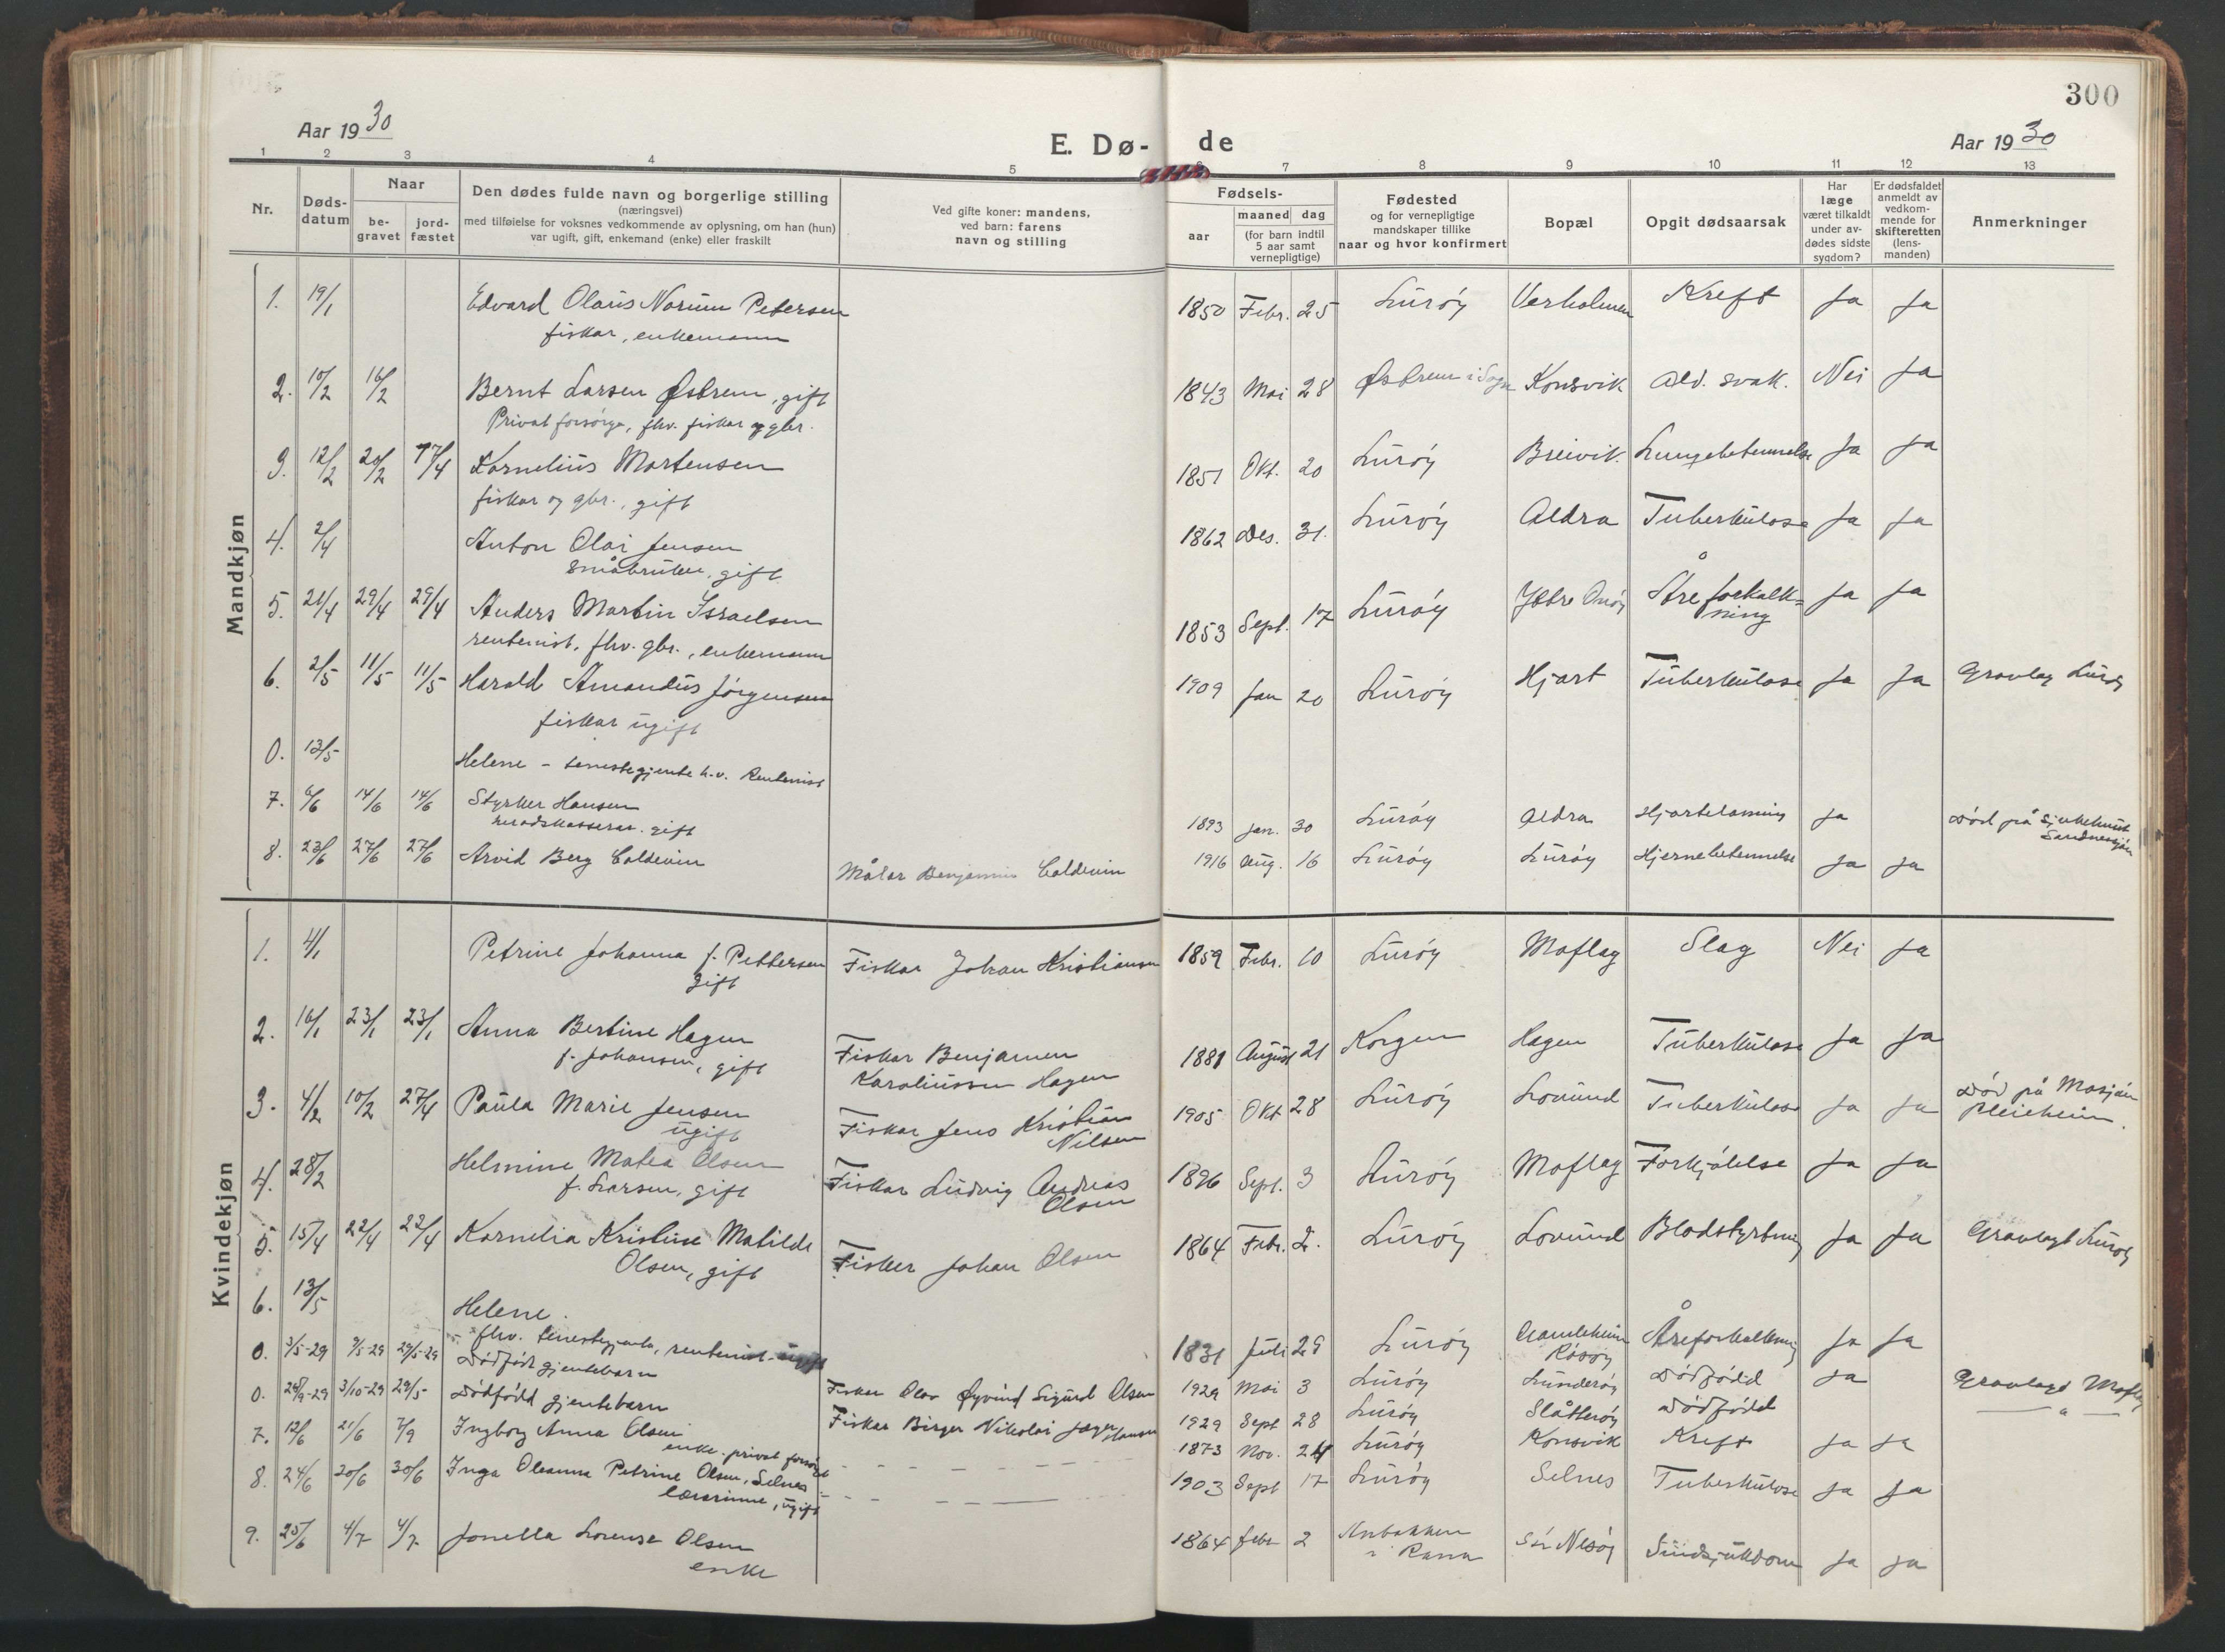 300
Aar 1930
E. Dø- de
Aar 1930
1 2 3 4 5 6 7 8 9 10 11 12 13
Nr.
Døds-
datum
Naar
be-
gravet
jord-
fæstet
Den dødes fulde navn og borgerlige stilling
(næringsvei)
med tilføielse for voksnes vedkommende av oplysning, om han (hun)
var ugift, gift, enkemand (enke) eller fraskilt
Ved gifte koner: mandens,
ved barn: farens
navn og stilling
Fødsels-
aar
maaned dag
(for barn indtil
5 aar samt
vernepligtige)
Fødested
og for vernepligtige
mandskaper tillike
naar og hvor konfirmert
Bopæl
Opgit dødsaarsak
Har
læge
været tilkaldt
under av-
dødes sidste
sygdom?
Er dødsfaldet
anmeldt av
vedkom-
mende for
skifteretten
(lens-
manden)
Anmerkninger
Mandkjøn
1. 19/1 Edvard Olaus Norum Petersen 1850 Febr. 25 Lurøy Verholmen Kreft Ja Ja
fiskar, enkemann
2. 10/2 16/2 Bernt Larsen Østrem, gift 1843 Mai 28 Østrem i Sogn Konsvik Ald. svak. Nei Ja
Privat forsörga, fhv. fiskar og gbr.
3. 12/2 20/2 17/4 Kornelius Mortensen 1851 Okt. 20 Lurøy Breivik Lungebetennelse Ja Ja
fiskar og gbr., gift
4. 2/4 Anton Olai Jensen 1862 Des. 31. Lurøy Aldra Tuberkulose Ja Ja
småbruker, gift
5. 21/4 29/4 29/4 Anders Martin Israelsen 1853 Sept. 17 Lurøy Yttre Onøy Åreforkalk=
ning Ja Ja
rentenist, fhv. gbr., enkemann
6. 2/5 11/5 11/5 Harald Amandus Jörgensen 1909 Jan 20 Lurøy Hjart Tuberkulose Ja Ja Gravlag Lurøy
fiskar ugift
0. 13/5 Helene - tenestegjente h.v. Rentenist
7. 6/6 14/6 14/6 Styrker Hansen 1893 Jan. 30 Lurøy Aldra Hjartelaming Ja Död på Sjukehuset
Sandnessjöen
heradskasserar. gift
8. 23/6 27/6 27/6 Arvid Berg Coldevin Målar Benjamin Coldevin 1916 Aug. 16 Lurøy Lurøy Hjernebetennelse Ja Ja
Kvindekjøn
1. 4/1 Petrine Johanna f. Pettersen Fiskar Johan Kristiansen 1859 Febr. 10 Lurøy Moflag Slag Nei Ja
gift
2. 16/1 23/1 23/1 Anna Bertine Hagen Fiskar Benjamen 1881 August 21 Korgen Hagen Tuberkulose Ja Ja
f. Johansen, gift Karoliussen Hagen
3. 4/2 10/2 27/4 Paula Marie Jensen Fiskar Jens Kristian 1905 Okt 28 Lurøy Lovund Tuberkulose Ja Ja Död på Mosjøen
ugift Nilsen Pleieheim.
4. 28/2 Helmine Matea Olsen Fiskar Ludvig Andreas 1896 Sept. 3 Lurøy Moflag Forkjölelse Ja Ja
f. Larsen, gift Olsen
5. 15/4 22/4 22/4 Kornelia Kristine Matilde Fisker Johan Olsen 1864 Febr. 2. Lurøy Lovund Blodstyrtning Ja Ja Gravlagt Lurøy
Olsen, gift
6. 13/5 Helene. 1831 Juli 29 Lurøy Gamleheim
Råsöy Åreforkalkning Ja Ja
fhv. tenestegjente, rentenist - ugift
0. 3/5-29 9/5-29 29/5-29 Dödfödt gjentebarn Fisker Olav Øyvind Sigurd Olsen 1929 Mai 3 Lurøy Sunderøy Dödfödd Ja Gravlagt Moflag
0. 28/9-29 3/10-29 29/5- Dödfödd gjentebarn Fiskar Birger Nikolai Hansen 1929 Sept 28 Lurøy Slåtterøy Dödfödd — " —
7. 12/6 21/6 7/9 Ingborg Anna Olsen 1873 Nov. 24 Lurøy Konsvik Kreft Ja Ja
enke. privat forsörgt
8. 24/6 30/6 30/6 Inga Oleanna Petrine Olsen, Selnes 1903 Sept 17 Lurøy Selnes Tuberkulose Ja Ja
lærerinne, ugift
9. 25/6 4/7 4/7 Jonella Lorense Olsen 1864 febr 2 i Rana Sör Nesøy Sindsjukdom Ja Ja
enke